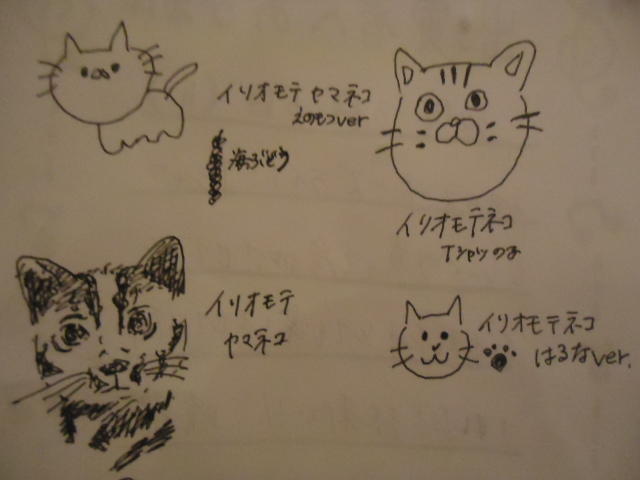 イリオモテ ヤマネコ
えのもつver
海ぶどう
イリオモテネコ
Tシャツの子
イリオモテ
ヤマネコ
イリオモテネコ
はるなver.